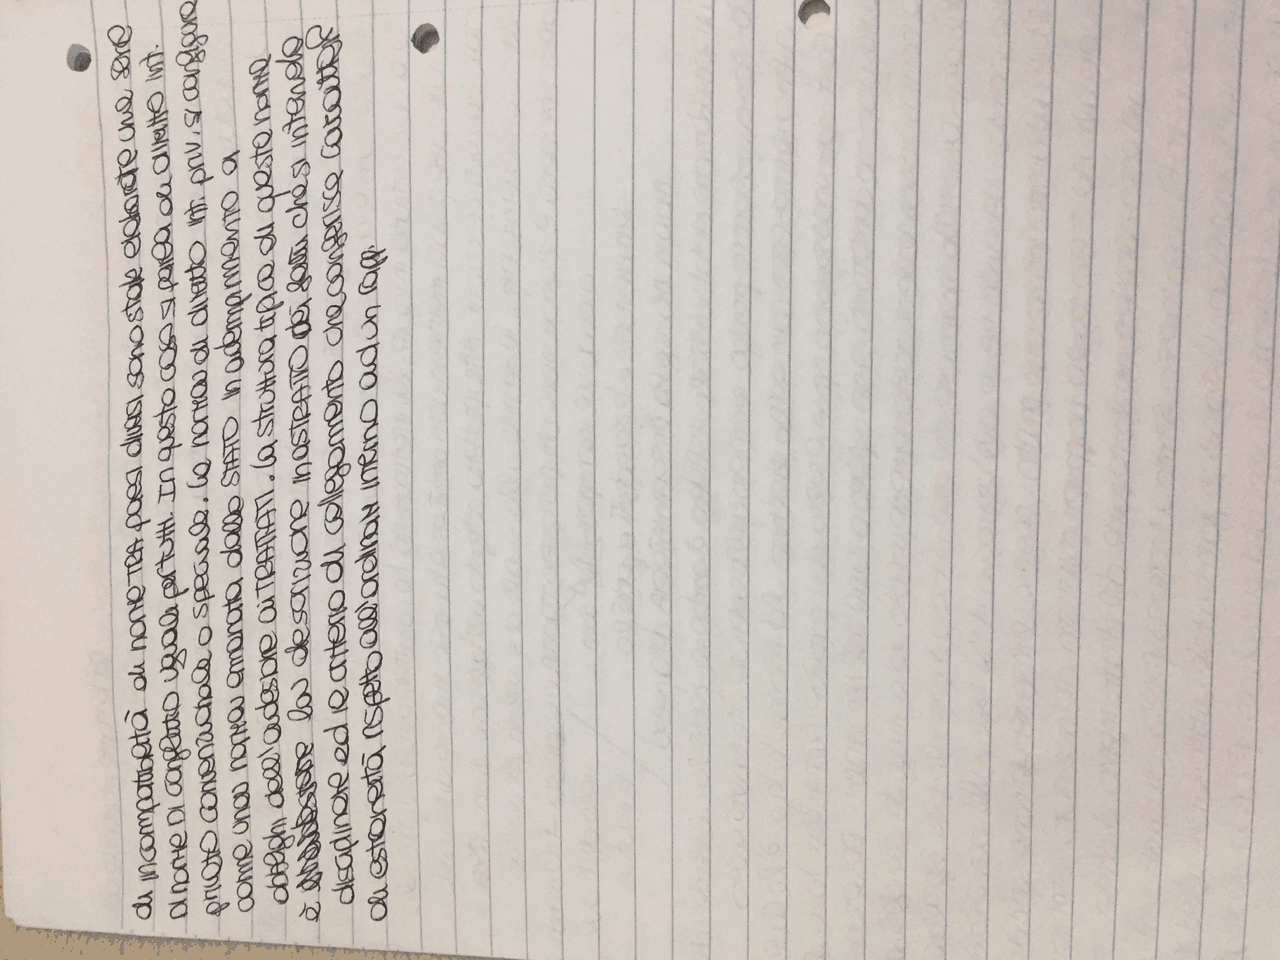 di incompatibilità di norme TRA paesi diversi sono state elaborate una serie
DI norme DI conflitto uguali per tutti. In questo caso si parla di diritto int.
privato convenzionale o speciale. La norma di diritto int. priv. si configura
come una norma emanata dallo STATO in adempimento a
obblighi dell'adesione ai TRATTATI. La struttura tipica di queste norme
è la descrizione in ASTRATTO dei fatti che si intende
disciplinare ed il criterio di collegamento che conferisce caratteri
di estraneità rispetto all'ordinam. interno ad un rapp.